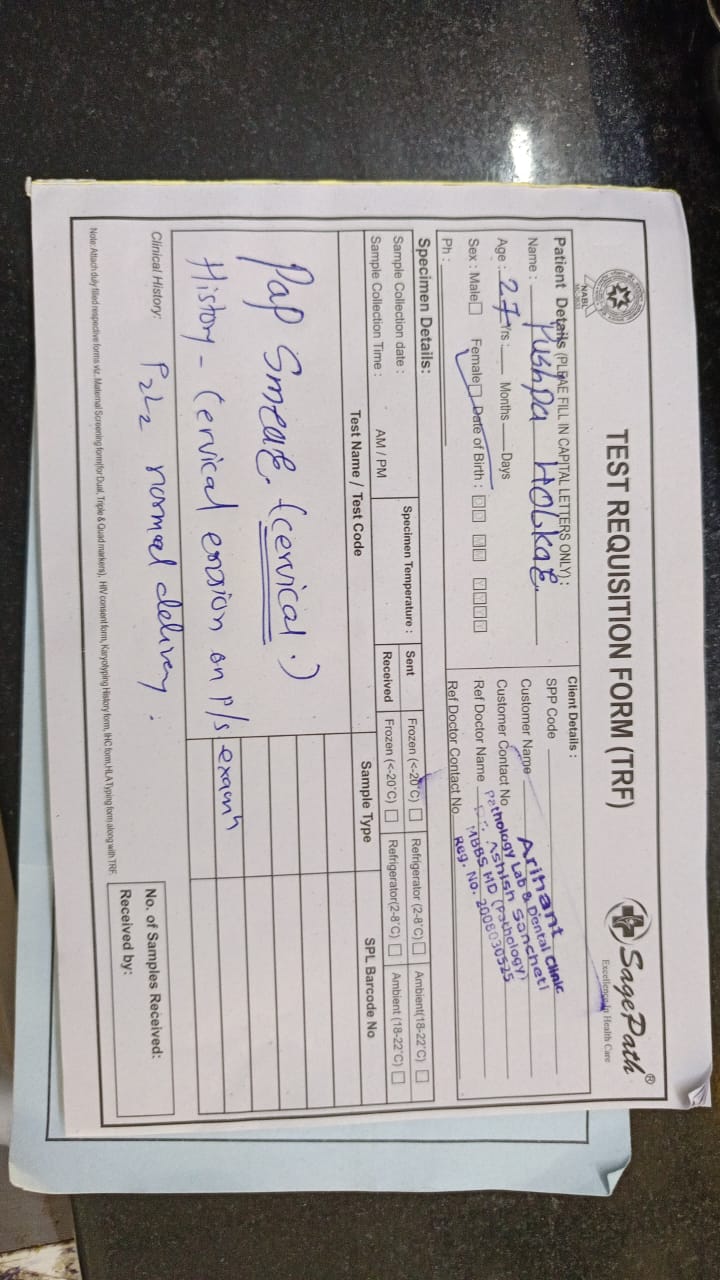 NABL
MC-3633
TEST REQUISITION FORM (TRF)
SagePath®
Excellence In Health Care
Patient Details (PLEAE FILL IN CAPITAL LETTERS ONLY) :
Name : Pushpa HOLkaR.
Age : 27 Yrs : Months Days
Sex : Male Female Date of Birth : D D M M Y Y Y Y
Ph :
Client Details :
SPP Code
Customer Name
Customer Contact No
Ref Doctor Name
Ref Doctor Contact No
Arihant
Pathology Lab & Dental Clinic
Dr. Ashish Sancheti
MBBS MD (Pathology)
Reg. No. 2006030525
Specimen Details:
Sample Collection date :
Sample Collection Time : AM / PM
Specimen Temperature :
Sent Frozen (<-20°C) Refrigerator (2-8°C) Ambient(18-22°C)
Received Frozen (<-20°C) Refrigerator(2-8°C) Ambient (18-22°C)
Test Name / Test Code Sample Type SPL Barcode No
Pap Smear. (cervical.)
History - Cervical erosion on P/s examn
Clinical History: P2L2 normal delivery.
No. of Samples Received:
Received by:
Note: Attach duly filled respective forms viz. Maternal Screening form(for Dual, Triple & Quad markers), HIV consent form, Karyotyping History form, IHC form, HLA Typing form along with TRF.